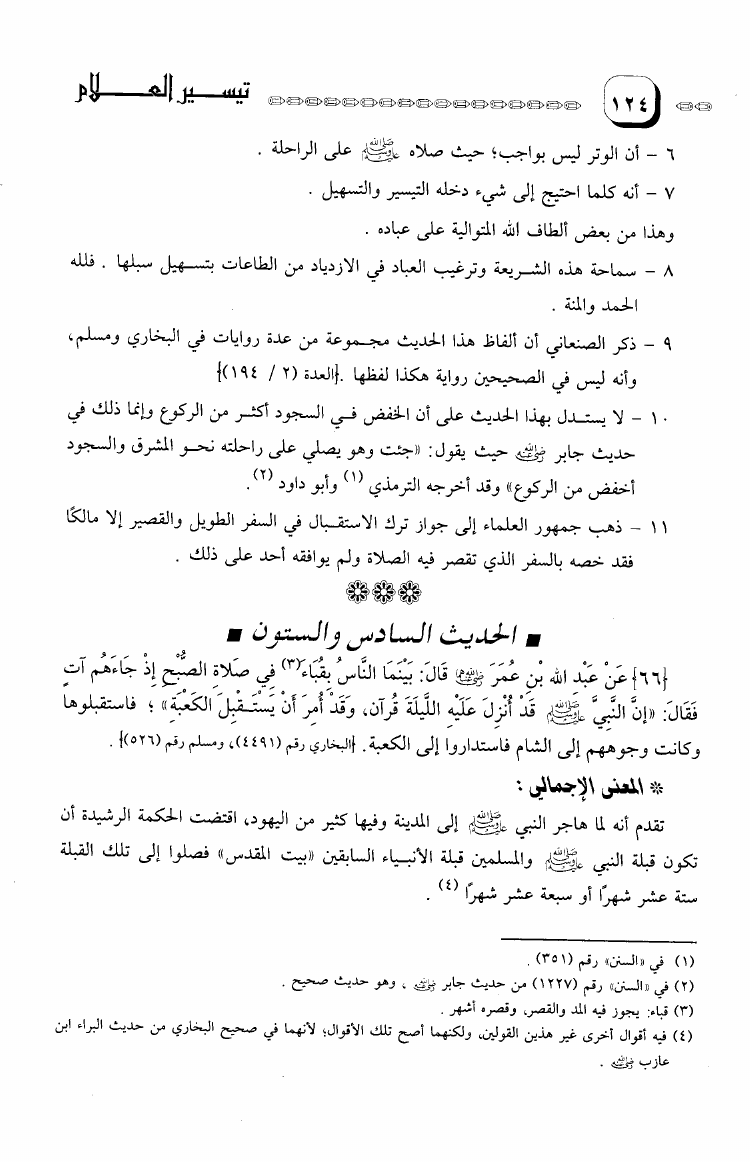 ١٢٤ تيسير العلام
٦ - أن الوتر ليس بواجب؛ حيث صلاه ﷺ على الراحلة .
٧ - أنه كلما احتيج إلى شيء دخله التيسير والتسهيل .
وهذا من بعض ألطاف الله المتوالية على عباده .
٨ - سماحة هذه الشريعة وترغيب العباد في الازدياد من الطاعات بتسهيل سبلها . فلله
الحمد والمنة .
٩ - ذكر الصنعاني أن ألفاظ هذا الحديث مجموعة من عدة روايات في البخاري ومسلم،
وأنه ليس في الصحيحين رواية هكذا لفظها .{العدة (٢ / ١٩٤)}
١٠ - لا يستدل بهذا الحديث على أن الخفض في السجود أكثر من الركوع وإنما ذلك في
حديث جابر رضي الله عنه حيث يقول: «جئت وهو يصلي على راحلته نحو المشرق والسجود
أخفض من الركوع» وقد أخرجه الترمذي (١) وأبو داود (٢).
١١ - ذهب جمهور العلماء إلى جواز ترك الاستقبال في السفر الطويل والقصير إلا مالكًا
فقد خصه بالسفر الذي تقصر فيه الصلاة ولم يوافقه أحد على ذلك .
■ الحديث السادس والستون ■
{٦٦} عَنْ عَبْدِ الله بْنِ عُمَرَ رضي الله عنهما قَالَ: بَيْنَمَا النَّاسُ بِقُبَاءَ(٣) فِي صَلَاةِ الصُّبْحِ إِذْ جَاءَهُم آتٍ
فَقَالَ: «إِنَّ النَّبِيَّ ﷺ قَدْ أُنْزِلَ عَلَيْهِ اللَّيْلَةَ قُرآن، وَقَدْ أُمِرَ أَنْ يَسْتَقْبِلَ الكَعْبَةِ» ؛ فاستقبلوها
وكانت وجوههم إلى الشام فاستداروا إلى الكعبة. {البخاري رقم (٤٤٩١)، ومسلم رقم (٥٢٦)} .
* المعنى الإجمالي :
تقدم أنه لما هاجر النبي ﷺ إلى المدينة وفيها كثير من اليهود، اقتضت الحكمة الرشيدة أن
تكون قبلة النبي ﷺ والمسلمين قبلة الأنبياء السابقين «بيت المقدس» فصلوا إلى تلك القبلة
ستة عشر شهرًا أو سبعة عشر شهرًا (٤) .
(١) في «السنن» رقم (٣٥١) .
(٢) في «السنن» رقم (١٢٢٧) من حديث جابر رضي الله عنه ، وهو حديث صحيح .
(٣) قباء: يجوز فيه المد والقصر، وقصره أشهر .
(٤) فيه أقوال أخرى غير هذين القولين، ولكنهما أصح تلك الأقوال؛ لأنهما في صحيح البخاري من حديث البراء ابن
عازب رضي الله عنه .